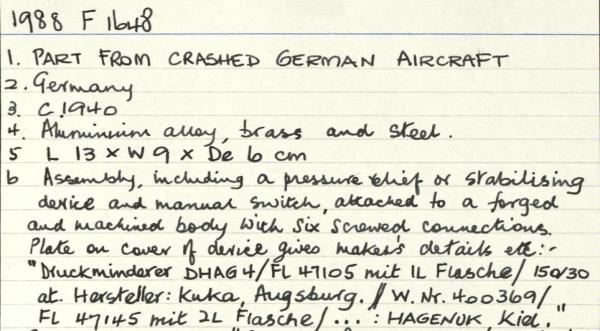 1988 F 1648
1. PART FROM CRASHED GERMAN AIRCRAFT
2. Germany
3. C.1940
4. Aluminium alloy, brass and steel.
5 L 13 x W 9 x De 6 cm
6 Assembly, including a pressure relief or stabilising
device and manual switch, attached to a forged
and machined body with six screwed connections.
Plate on cover of device gives maker's details etc:-
"Druckminderer DHAG4/FL 47105 mit 1L Flasche/ 150/30
at. Hersteller: Kuka, Augsburg. // W. Nr. 400369/
FL 47145 mit 2L Flasche/ ... : HAGENUK, Kiel."